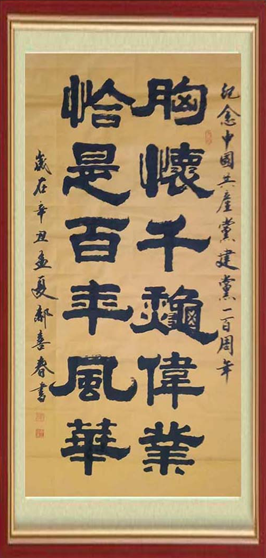 纪念中國共產黨建黨一百周年
胸懷千龝偉業
恰是百年風華
歲在辛丑孟夏郝喜春書